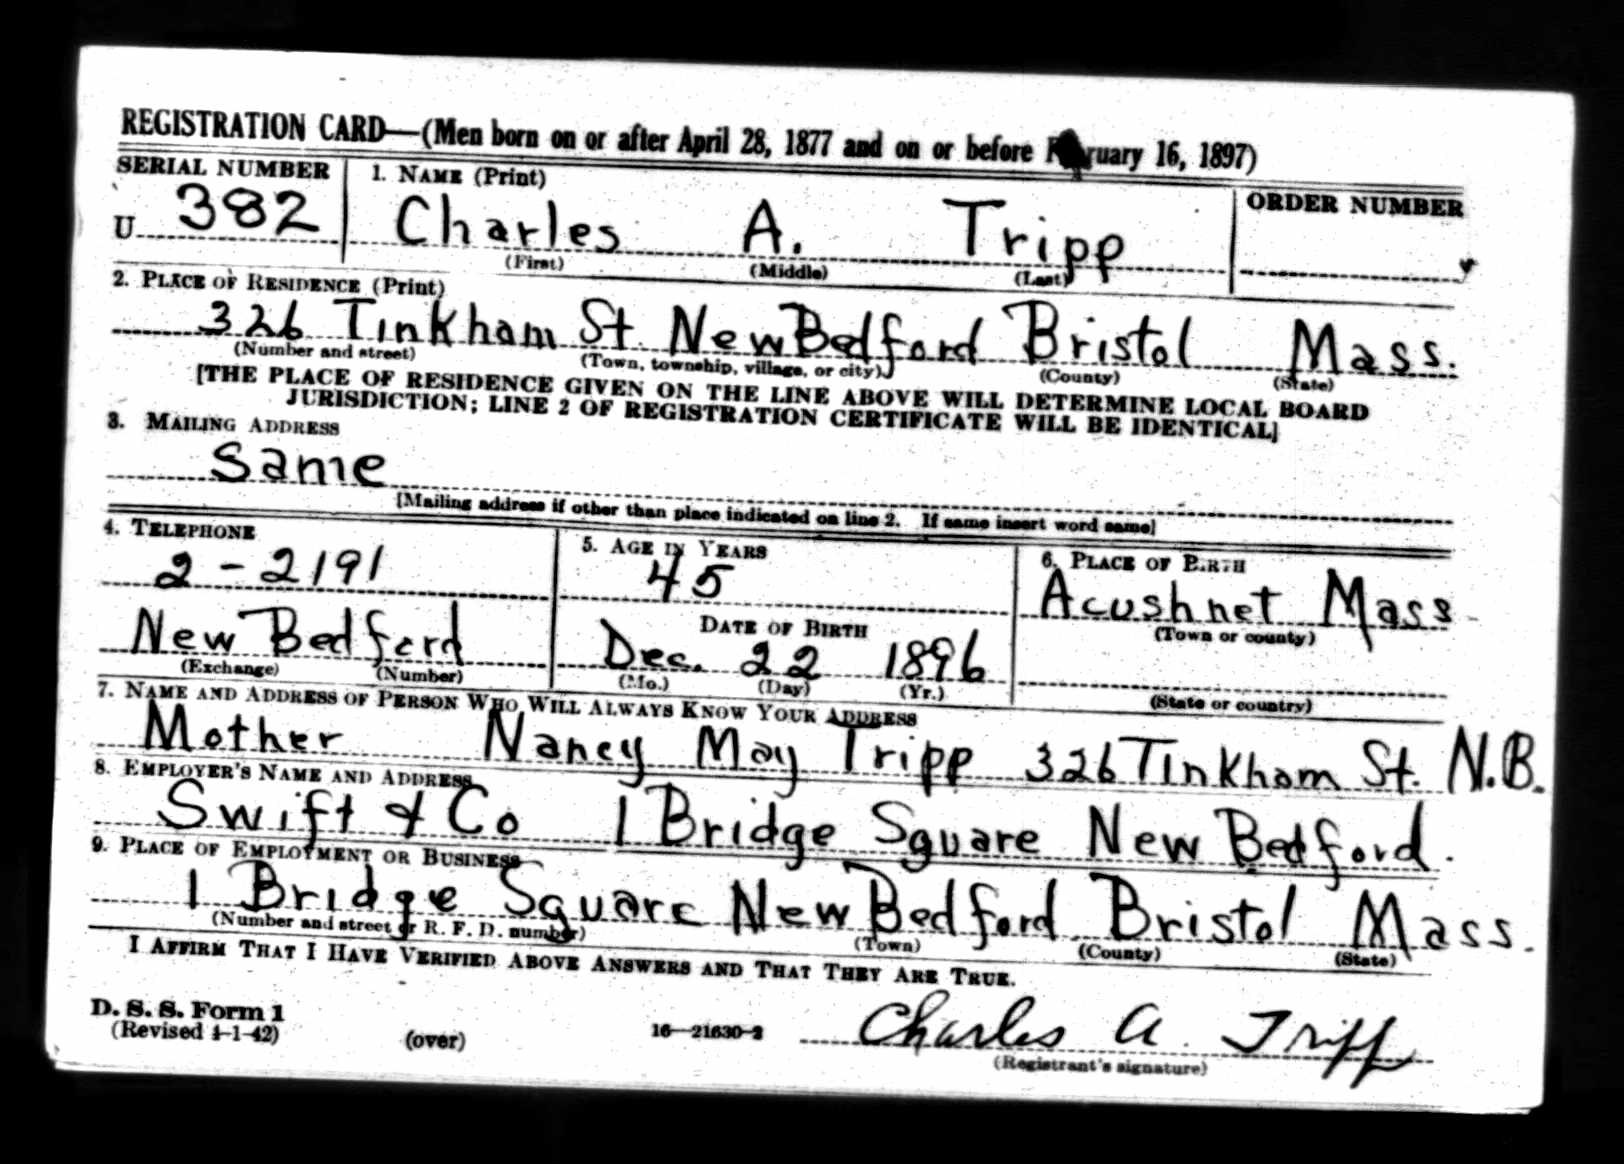 REGISTRATION CARD—(Men born on or after April 28, 1877 and on or before February 16, 1897)
SERIAL NUMBER 1. NAME (Print) ORDER NUMBER
U 382 Charles A. Tripp
(First) (Middle) (Last)
2. PLACE OF RESIDENCE (Print)
326 Tinkham St. New Bedford Bristol Mass.
(Number and street) (Town, township, village, or city) (County) (State)
[THE PLACE OF RESIDENCE GIVEN ON THE LINE ABOVE WILL DETERMINE LOCAL BOARD
JURISDICTION; LINE 2 OF REGISTRATION CERTIFICATE WILL BE IDENTICAL]
3. MAILING ADDRESS
Same
[Mailing address if other than place indicated on line 2. If same insert word same]
4. TELEPHONE 5. AGE IN YEARS 6. PLACE OF BIRTH
2-2191 45 Acushnet Mass
DATE OF BIRTH (Town or county)
New Bedford Dec. 22 1896
(Exchange) (Number) (Mo.) (Day) (Yr.) (State or country)
7. NAME AND ADDRESS OF PERSON WHO WILL ALWAYS KNOW YOUR ADDRESS
Mother Nancy May Tripp 326 Tinkham St. N.B.
8. EMPLOYER'S NAME AND ADDRESS
Swift & Co 1 Bridge Square New Bedford.
9. PLACE OF EMPLOYMENT OR BUSINESS
1 Bridge Square New Bedford Bristol Mass.
(Number and street or R. F. D. number) (Town) (County) (State)
I AFFIRM THAT I HAVE VERIFIED ABOVE ANSWERS AND THAT THEY ARE TRUE.
D. S. S. Form 1
(Revised 4-1-42) (over) 16—21630-2 Charles A. Tripp
(Registrant's signature)